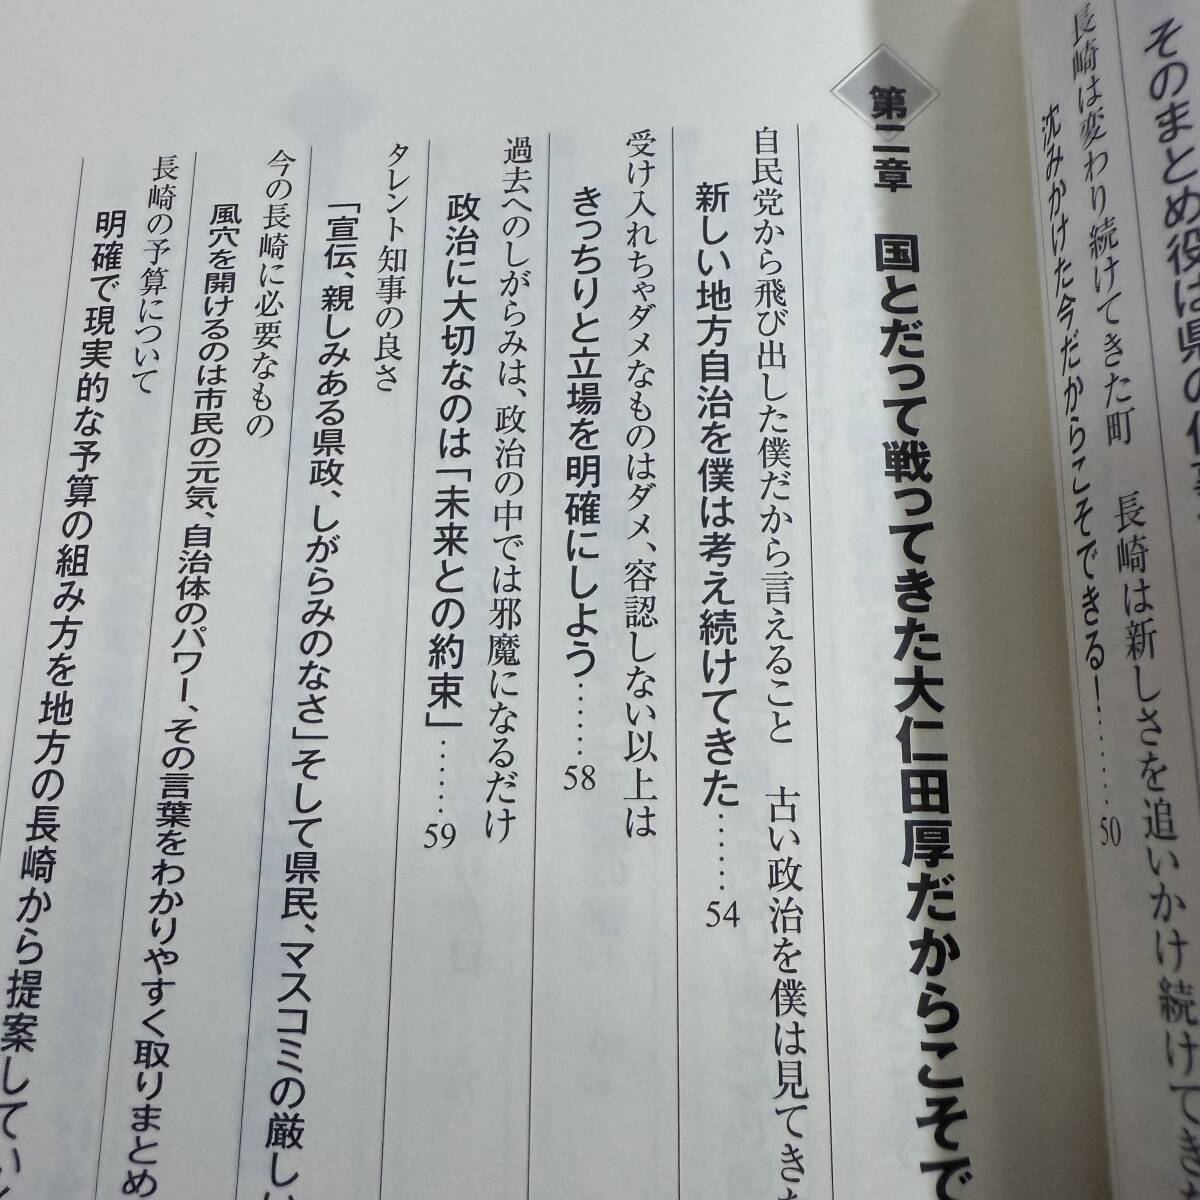 そのまとめ役は県の
長崎は変わり続けてきた町　長崎は新しさを追いかけ続けてき
沈みかけた今だからこそできる！……50
第二章　国とだって戦ってきた大仁田厚だからこそで
自民党から飛び出した僕だから言えること　古い政治を僕は見てきた
新しい地方自治を僕は考え続けてきた……54
受け入れちゃダメなものはダメ、容認しない以上は
きっちりと立場を明確にしよう……58
過去へのしがらみは、政治の中では邪魔になるだけ
政治に大切なのは「未来との約束」……59
タレント知事の良さ
「宣伝、親しみある県政、しがらみのなさ」そして県民、マスコミの厳しい
今の長崎に必要なもの
風穴を開けるのは市民の元気、自治体のパワー、その言葉をわかりやすく取りまとめ
長崎の予算について
明確で現実的な予算の組み方を地方の長崎から提案してい